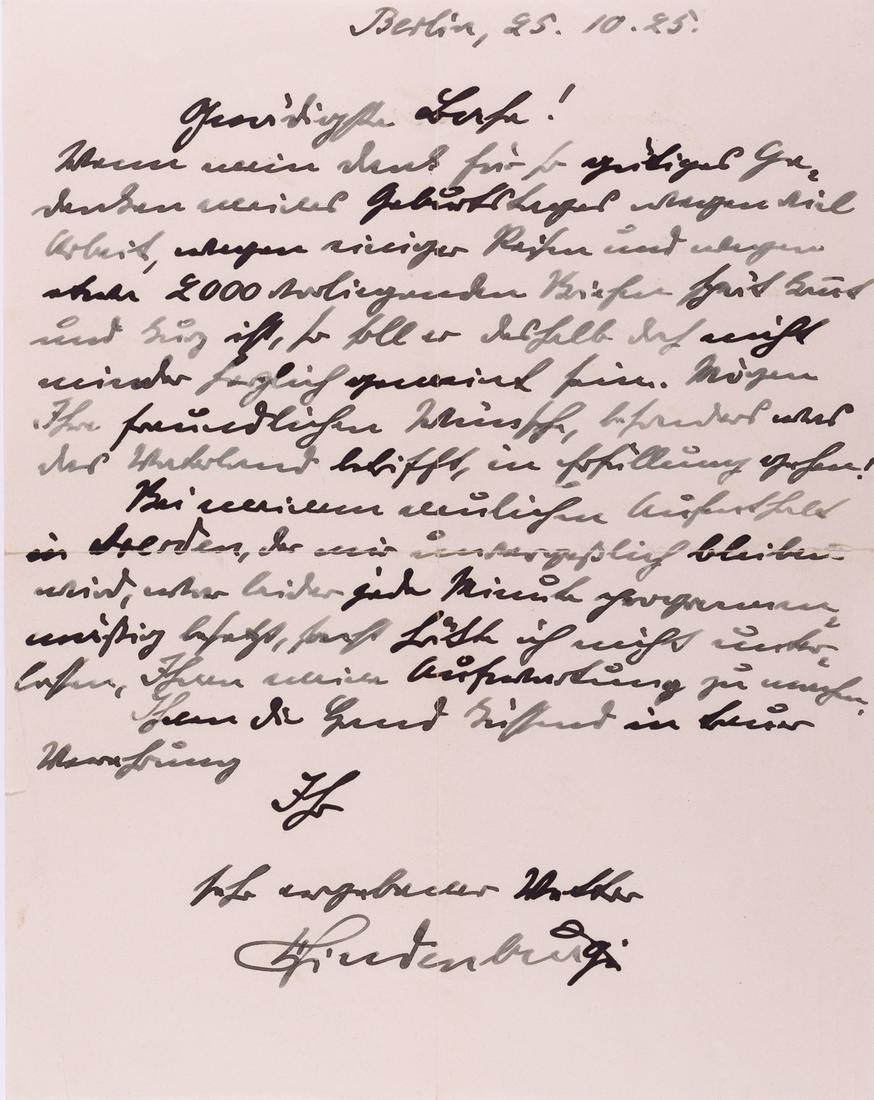 Berlin, 25. 10. 25.
Gnädigste Base!
Wenn mein Dank für so gütiges Ge-
denken meines Geburtstages wegen viel
Arbeit, wegen einiger Reisen und wegen
etwa 2000 vorliegenden Briefen spät kommt
und kurz ist, so soll er deshalb doch nicht
minder herzlich gemeint sein. Mögen
Ihre freundlichen Wünsche, besonders was
das Vaterland betrifft, in Erfüllung gehen!
Bei meinem neulichen Aufenthalt
in Dresden, der mir unvergeßlich bleiben
wird, war leider jede Minute programm-
mäßig besetzt, sonst hätte ich nicht unter-
lassen, Ihnen meine Aufwartung zu machen.
Ihnen die Hand küssend in treuer
Verehrung
Ihr
sehr ergebener Vetter
Hindenburg.